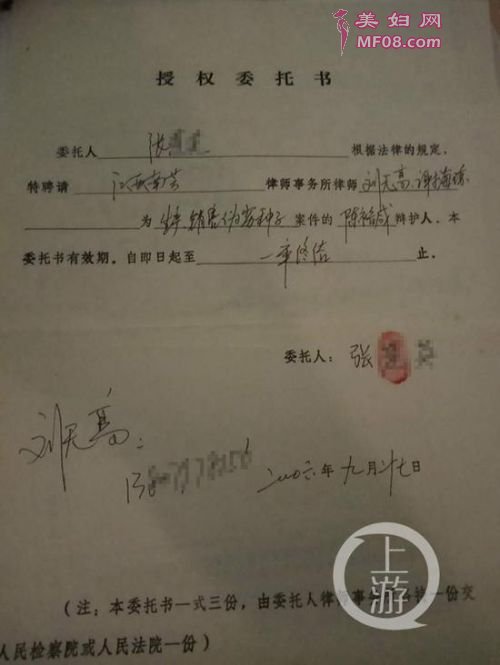 美妇网
MF08.com
授权委托书
委托人 张 根据法律的规定,
特聘请 江西南芳 律师事务所律师 刘天高、谢
为 生产、销售伪劣种子 案件的 陈裕咸 辩护人。本
委托书有效期,自即日起至 一审终结 止。
委托人: 张
刘天高:
二00六年九月廿七日
上游
(注:本委托书一式三份,由委托人律师事 一份交
人民检察院或人民法院一份)